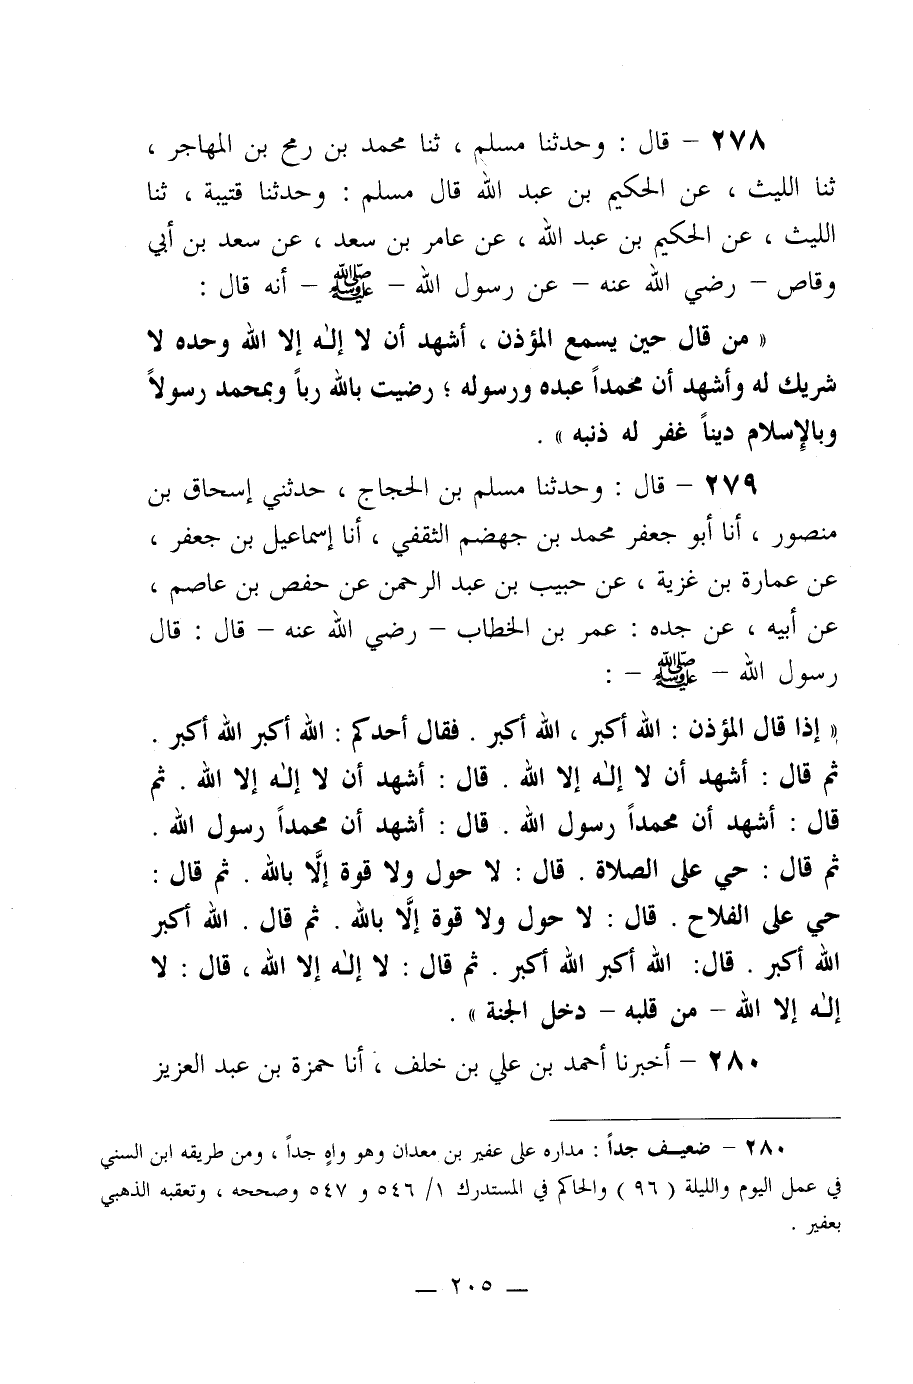 ٢٧٨ – قال : وحدثنا مسلم ، ثنا محمد بن رمح بن المهاجر ،
ثنا الليث ، عن الحكيم بن عبد الله قال مسلم : وحدثنا قتيبة ، ثنا
الليث ، عن الحكيم بن عبد الله ، عن عامر بن سعد ، عن سعد بن أبي
وقاص – رضي الله عنه – عن رسول الله – ﷺ – أنه قال :
« من قال حين يسمع المؤذن ، أشهد أن لا إلٰه إلا الله وحده لا
شريك له وأشهد أن محمداً عبده ورسوله ؛ رضيت بالله رباً وبمحمد رسولاً
وبالإسلام ديناً غفر له ذنبه » .
٢٧٩ – قال : وحدثنا مسلم بن الحجاج ، حدثني إسحاق بن
منصور ، أنا أبو جعفر محمد بن جهضم الثقفي ، أنا إسماعيل بن جعفر ،
عن عمارة بن غزية ، عن حبيب بن عبد الرحمن عن حفص بن عاصم ،
عن أبيه ، عن جده : عمر بن الخطاب – رضي الله عنه – قال : قال
رسول الله – ﷺ – :
« إذا قال المؤذن : الله أكبر ، الله أكبر . فقال أحدكم : الله أكبر الله أكبر .
ثم قال : أشهد أن لا إلٰه إلا الله . قال : أشهد أن لا إلٰه إلا الله . ثم
قال : أشهد أن محمداً رسول الله . قال : أشهد أن محمداً رسول الله .
ثم قال : حي على الصلاة . قال : لا حول ولا قوة إلَّا بالله . ثم قال :
حي على الفلاح . قال : لا حول ولا قوة إلَّا بالله . ثم قال . الله أكبر
الله أكبر . قال: الله أكبر الله أكبر . ثم قال : لا إلٰه إلا الله ، قال : لا
إلٰه إلا الله – من قلبه – دخل الجنة » .
٢٨٠ – أخبرنا أحمد بن علي بن خلف ، أنا حمزة بن عبد العزيز
٢٨٠ – ضعيف جداً : مداره على عفير بن معدان وهو واهٍ جداً ، ومن طريقه ابن السني
في عمل اليوم والليلة ( ٩٦ ) والحاكم في المستدرك ١/ ٥٤٦ و ٥٤٧ وصححه ، وتعقبه الذهبي
بعفير .
— ٢٠٥ —